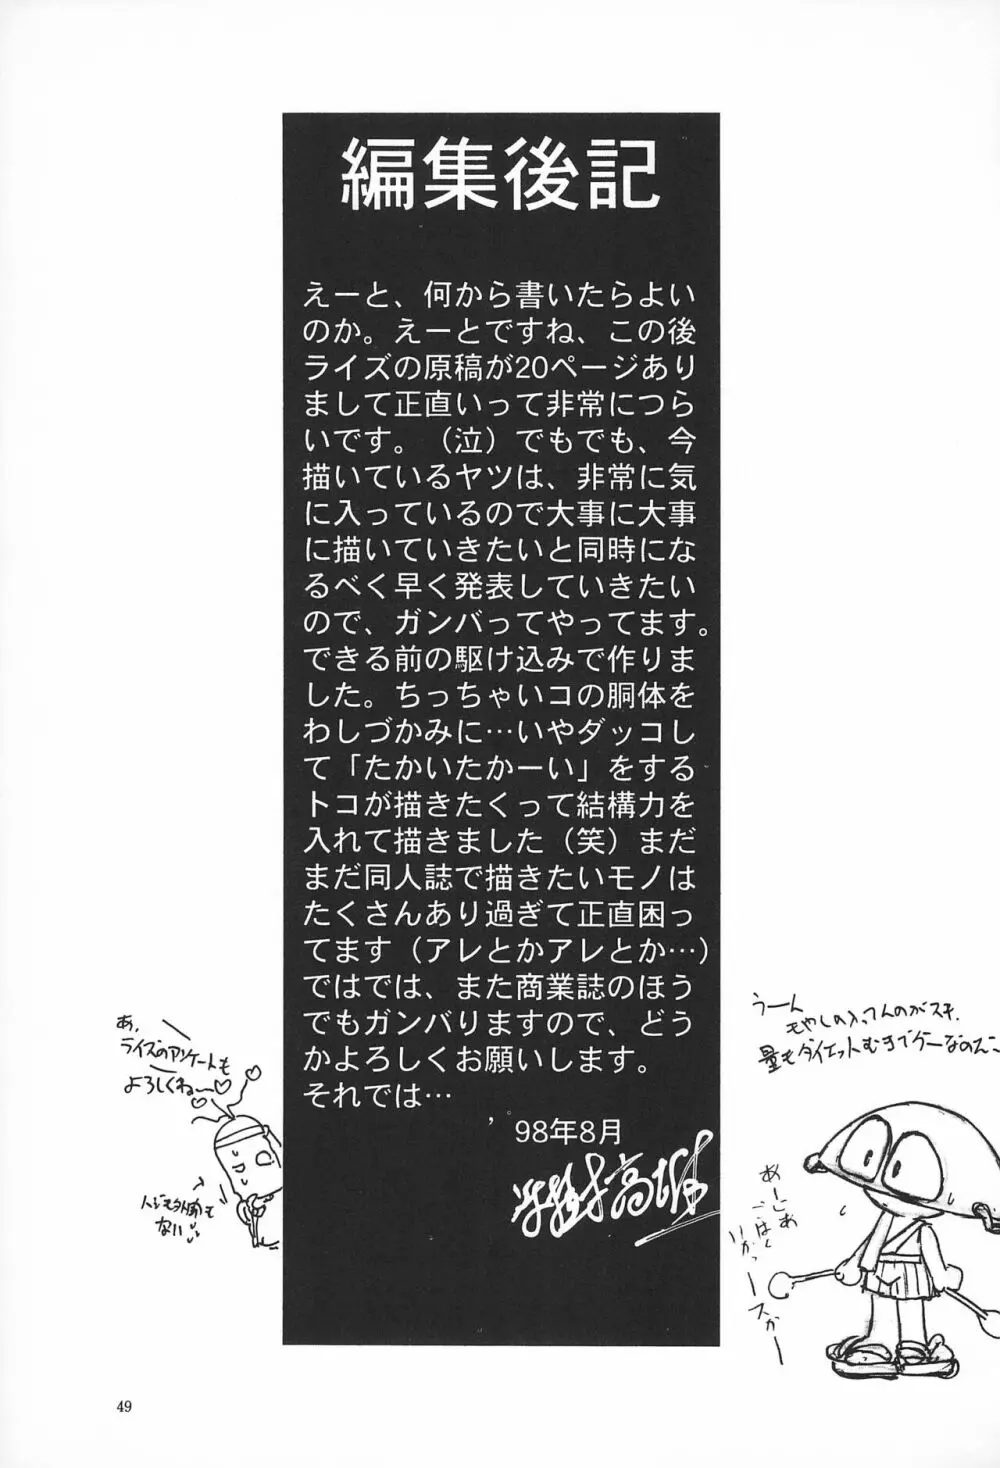 編集後記
えーと、何から書いたらよい
のか。えーとですね、この後
ライズの原稿が20ページあり
まして正直いって非常につら
いです。（泣）でもでも、今
描いているヤツは、非常に気
に入っているので大事に大事
に描いていきたいと同時にな
るべく早く発表していきたい
ので、ガンバってやってます。
できる前の駆け込みで作りま
した。ちっちゃいコの胴体を
わしづかみに…いやダッコし
て「たかいたかーい」をする
トコが描きたくって結構力を
入れて描きました（笑）まだ
まだ同人誌で描きたいモノは
たくさんあり過ぎて正直困っ
てます（アレとかアレとか…）
ではでは、また商業誌のほう
でもガンバりますので、どう
かよろしくお願いします。
それでは…
'98年8月
あ、
ライズのアンケートも
よろしくね〜♡
ない
うーん
量もダイエット
49